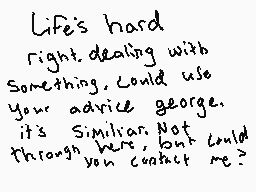 Life's hard
right. dealing with
something, could use
your advice george.
it's similiar. Not
through here, but could
you contact me?